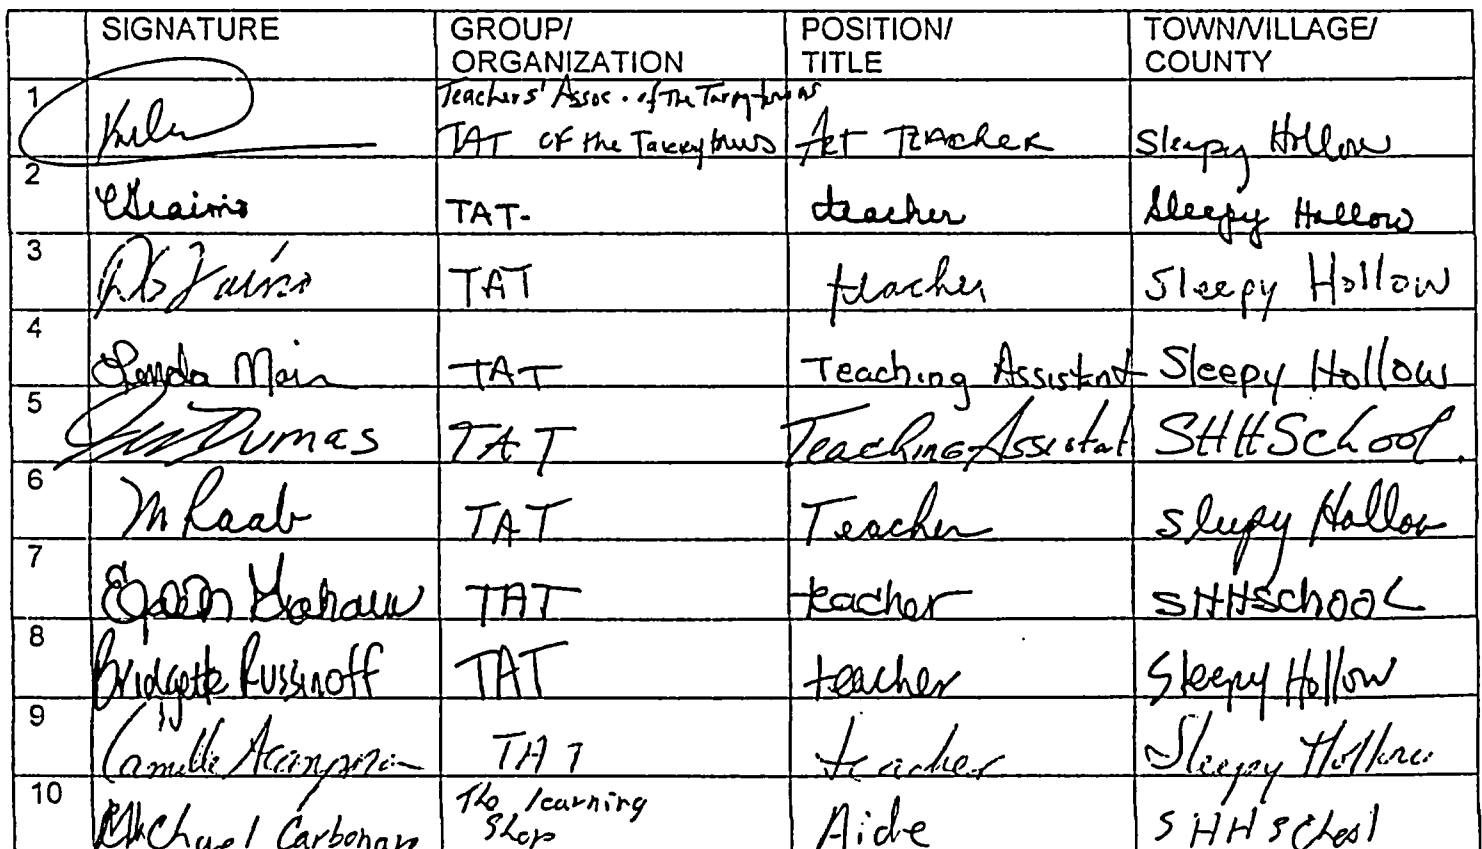 SIGNATURE GROUP/ POSITION/ TOWN/VILLAGE/
ORGANIZATION TITLE COUNTY
Teachers' Assoc. of The Tarrytowns
1 TAT of the Tarrytowns Art Teacher Sleepy Hollow
2 TAT- teacher Sleepy Hollow
3 TAT teacher Sleepy Hollow
4 Mair TAT Teaching Assistant Sleepy Hollow
5 Dumas TAT Teaching Assistat SHHSchool.
6 M Raab TAT Teacher Sleepy Hollow
7 TAT teacher SHHSchool
8 Bridgette Russinoff TAT teacher Sleepy Hollow
9 Camille TAT teacher Sleepy Hollow
10 Michael Carbonare The learning Aide SHHSchool
Shop